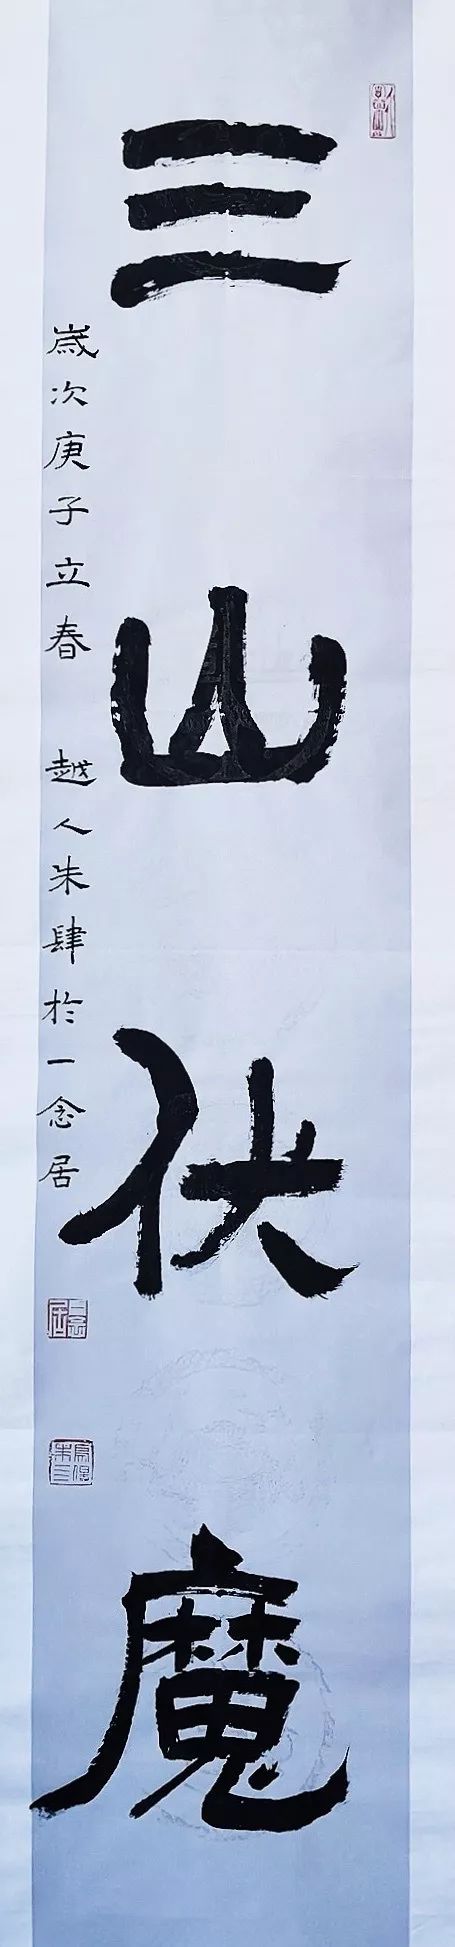 三山伏魔
歲次庚子立春 越人朱肆於一念居